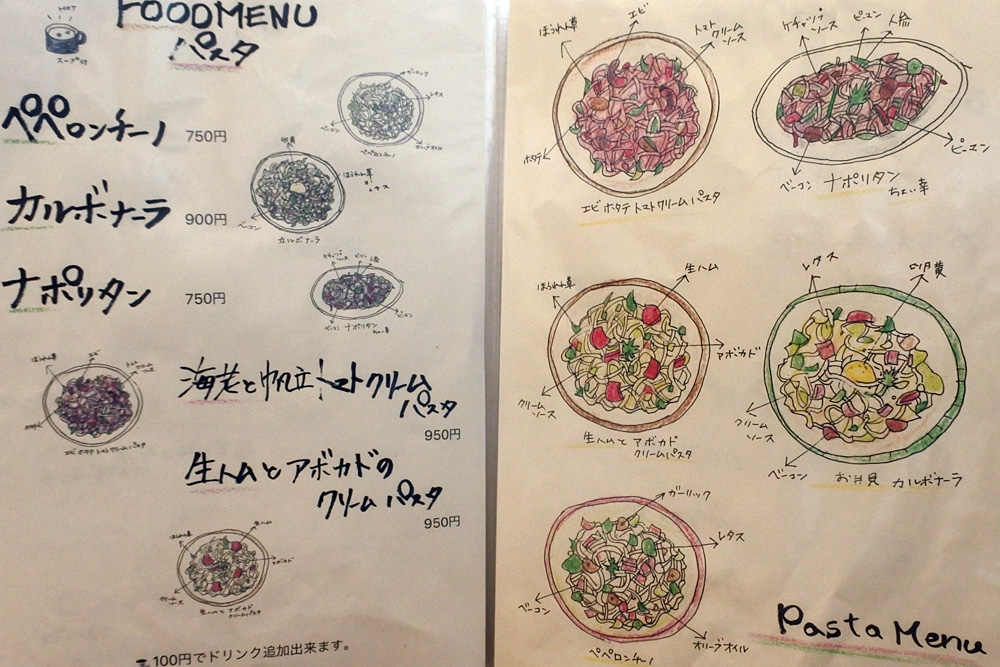 FOODMENU
パスタ
HOT
スープ付
ペペロンチーノ 750円
ガーリック
レタス
ベーコン
オリーブオイル
ペペロンチーノ
カルボナーラ 900円
ベーコン
カルボナーラ
ナポリタン 750円
ケチャップ
ソース
ピーマン
人参
ベーコン
ピーマン
ナポリタン
ちょい辛
海老と帆立トマトクリーム
パスタ
950円
ほうれん草
エビ
トマト
クリーム
ソース
ホタテ
エビホタテトマトクリームパスタ
生ハムとアボカドの
クリームパスタ
950円
ほうれん草
生ハム
アボカド
クリーム
ソース
生ハムとアボカド
クリームパスタ
100円でドリンク追加出来ます。
ほうれん草
エビ
トマト
クリーム
ソース
ホタテ
エビホタテトマトクリームパスタ
ケチャップ
ソース
ピーマン
人参
ベーコン
ピーマン
ナポリタン
ちょい辛
ほうれん草
生ハム
アボカド
クリーム
ソース
生ハムとアボカド
クリームパスタ
レタス
卵黄
クリーム
ソース
ベーコン
カルボナーラ
ガーリック
レタス
ベーコン
オリーブオイル
ペペロンチーノ
Pasta Menu